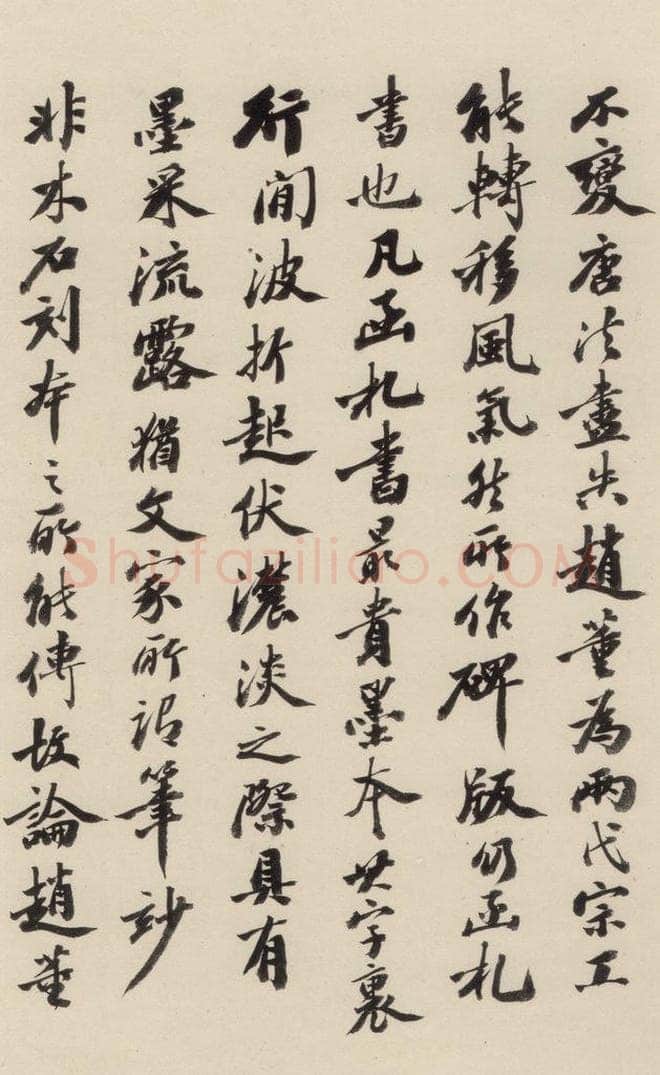 不变唐法盡失趙董為兩代宗工
能轉移風氣然所作碑版仍函札
書也凡函札書最貴墨本其字裏
行間波折起伏濃淡之際具有
墨采流露猶文家所謂筆妙
非木石刻本之所能傳故論趙董
Shufaziliao.COM